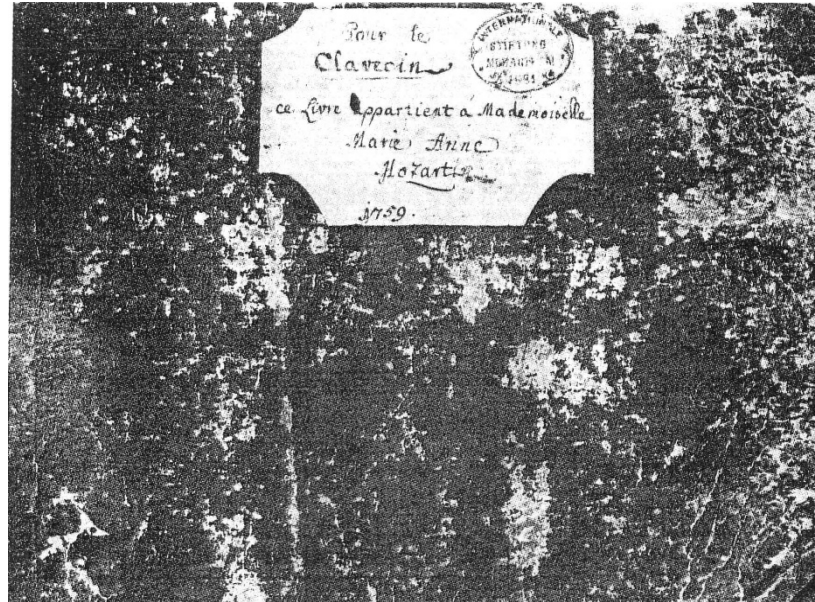 Pour le
Clavecin
ce Livre appartient á Mademoiselle
Marie Anne
Mozart
1759.
INTERNATIONALE
STIFTUNG
MOZARTEUM